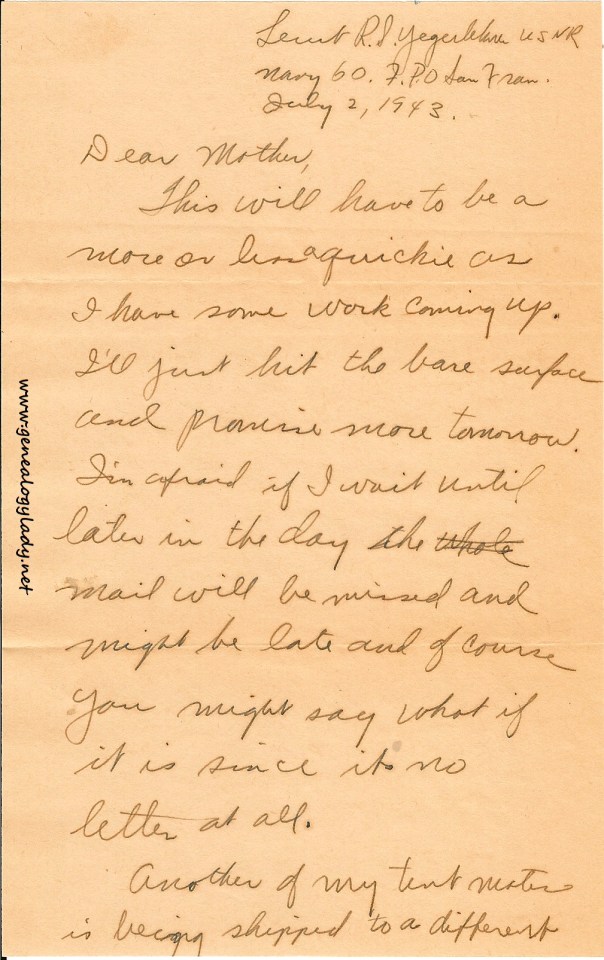 Lieut R. I. Yegerlehner USNR
Navy 60. F.P.O San Fran.
July 2, 1943.
Dear Mother,
This will have to be a
more or less a quickie as
I have some work coming up.
I'll just hit the bare surface
and promise more tomorrow.
I'm afraid if I wait until
later in the day the whole
mail will be missed and
might be late and of course
you might say what if
it is since its no
letter at all.
Another of my tent mates
is being shipped to a different
www.genealogylady.net